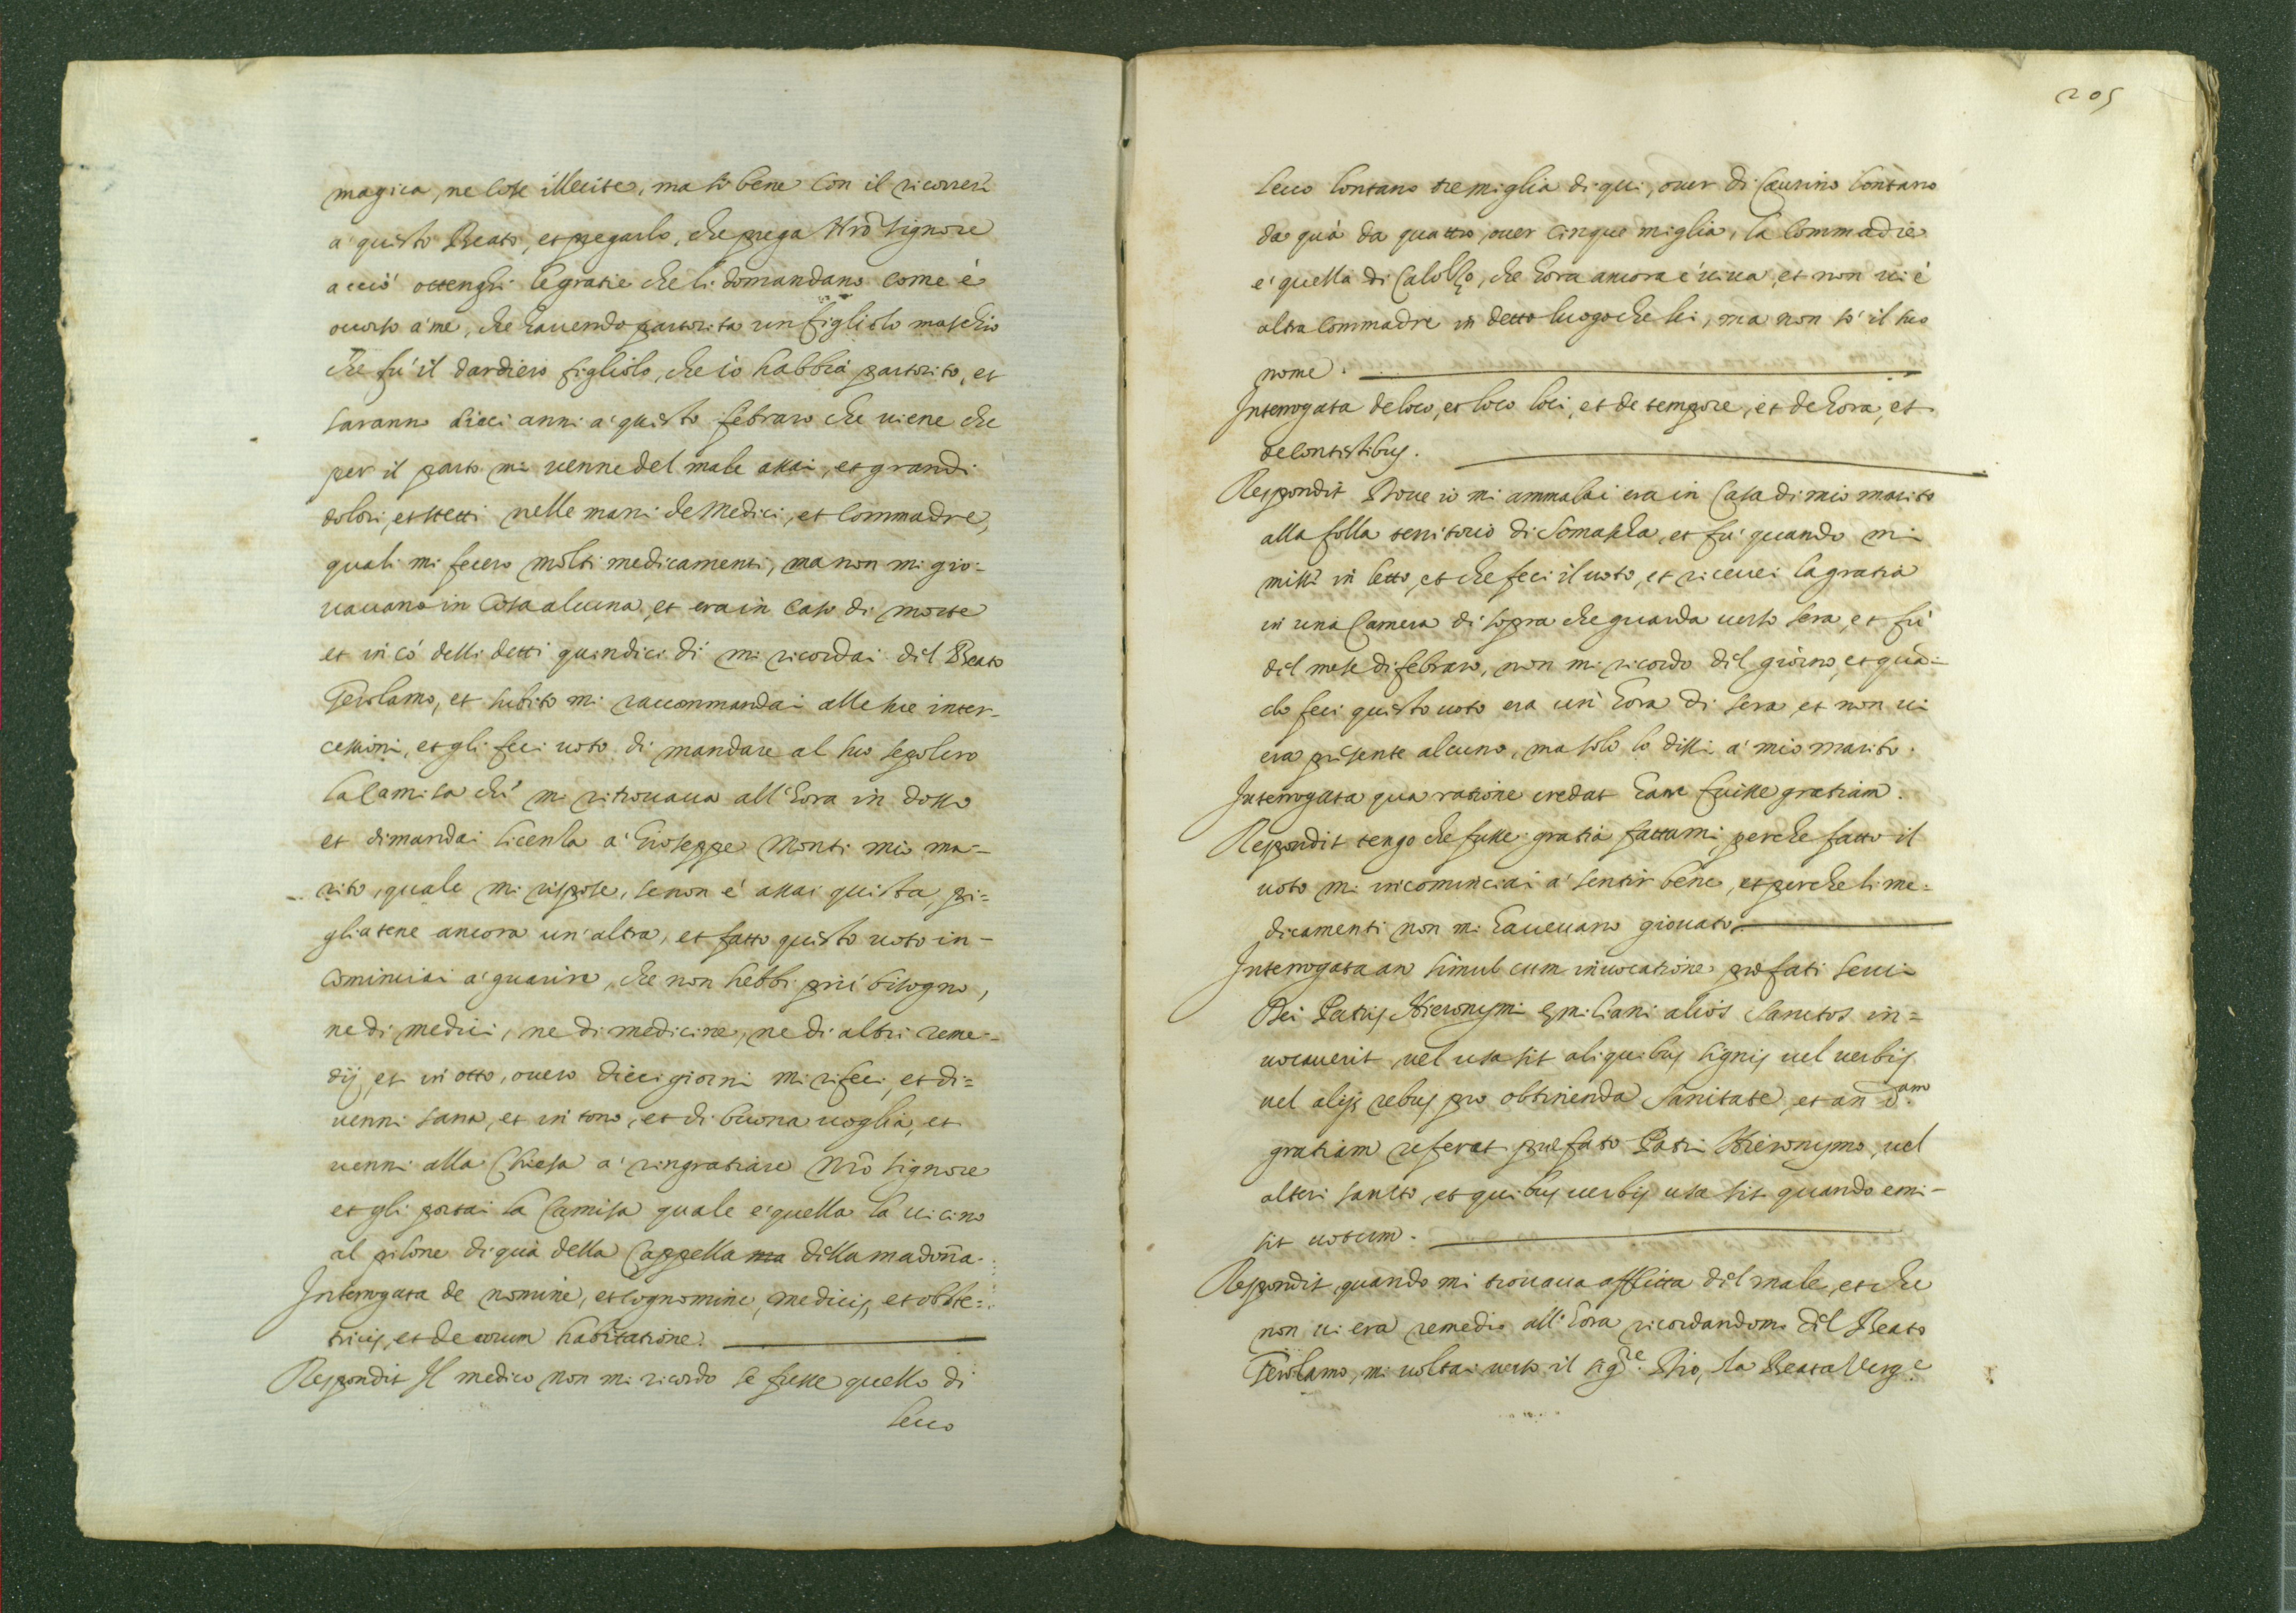 magica, ne cose illecite, ma sò bene con il ricorrere
a questo Beato, et pregarlo, che prega Nrō Signore
acciò ottenghi le gratie che li domandano come è
occorso a' me, che havendo partorita un figliolo maschio
che fu' il dardiero figliolo, che io habbia partorito, et
saranno dieci anni a' questo febraro che viene che
per il parto mi venne del male assai, et grandi
dolori, et stetti nelle mani de Medici, et Commadre,
quali mi fecero molti medicamenti, ma non mi gio-
vavano in cosa alcuna, et era in caso di morte
et in cò delli detti quindici dì mi ricordai del Beato
Gerolamo, et subito mi raccommandai alle sue inter-
cessioni, et gli feci voto di mandare al suo sepolcro
la Camisa che mi ritrovava all'hora in dosso
et dimandai licenza a' Gioseppe Monti mio ma-
rito, quale mi rispose, se non è assai questa, pi=
gliatene ancora un'altra, et fatto questo voto in-
cominciai a' guarire, che non hebbi più bisogno,
ne di medici, ne di medicine, ne di altri reme-
dij, et in otto, overo dieci giorni mi rifeci, et di=
venni sana, et in tono, et di buona voglia, et
venni alla Chiesa a' ringratiare Nrō Signore
et gli portai la Camisa quale e' quella là vicino
al pilone di quà della Cappella ma della madoña.
Interrogata de nomine, et cognomine, medicis, et obste=
tricis, et de eorum habitatione.
Respondit Il medico non mi ricordo se fusse quello di
Lecco
205
Lecco lontano tre miglia di qui, over di Caurino lontano
da quà da quattro, over cinque miglia, la Commadre
e' quella di Calolzo, che hora ancora e' viva, et non vi è
altra Commadre in detto luogo che lei, ma non sò il suo
nome.
Interrogata de loco, et loco loci, et de tempore, et de hora, et
de contestibus.
Respondit Dove io mi ammalai era in Casa di mio marito
alla folla territorio di Somascha, et fu' quando mi
missi in letto, et che feci il voto, et ricevei la gratia
in una Camera di sopra che guarda verso sera, et fù
del mese di febraro, non mi ricordo del giorno, et quā-
do feci questo voto era un' hora di sera et non vi
era presente alcuno, ma solo lo dissi a' mio marito.
Interrogata qua ratione credat hanc fuisse gratiam.
Respondit tengo che fusse gratia fattami, perche fatto il
voto mi incominciai a' sentir bene, et perche li me-
dicamenti non mi havevano giovato.
Interrogata an simul cum invocatione prefati servi
Dei Patris Hieronymi Emiliani alios sanctos in=
vocaverit, vel usa sit aliquibus signis vel verbis
vel alijs rebus pro obtinenda sanitate, et an d.am
gratiam referat prefato Patri Hieronymo, vel
alteri sancto, et quibus verbis usa sit quando emi-
sit votum.
Respondit, quando mi trovava afflitta del male, et che
non vi era remedio all'hora ricordandomi del Beato
Gerolamo, mi voltai verso il sig.re Dio, la Beata Verg.e